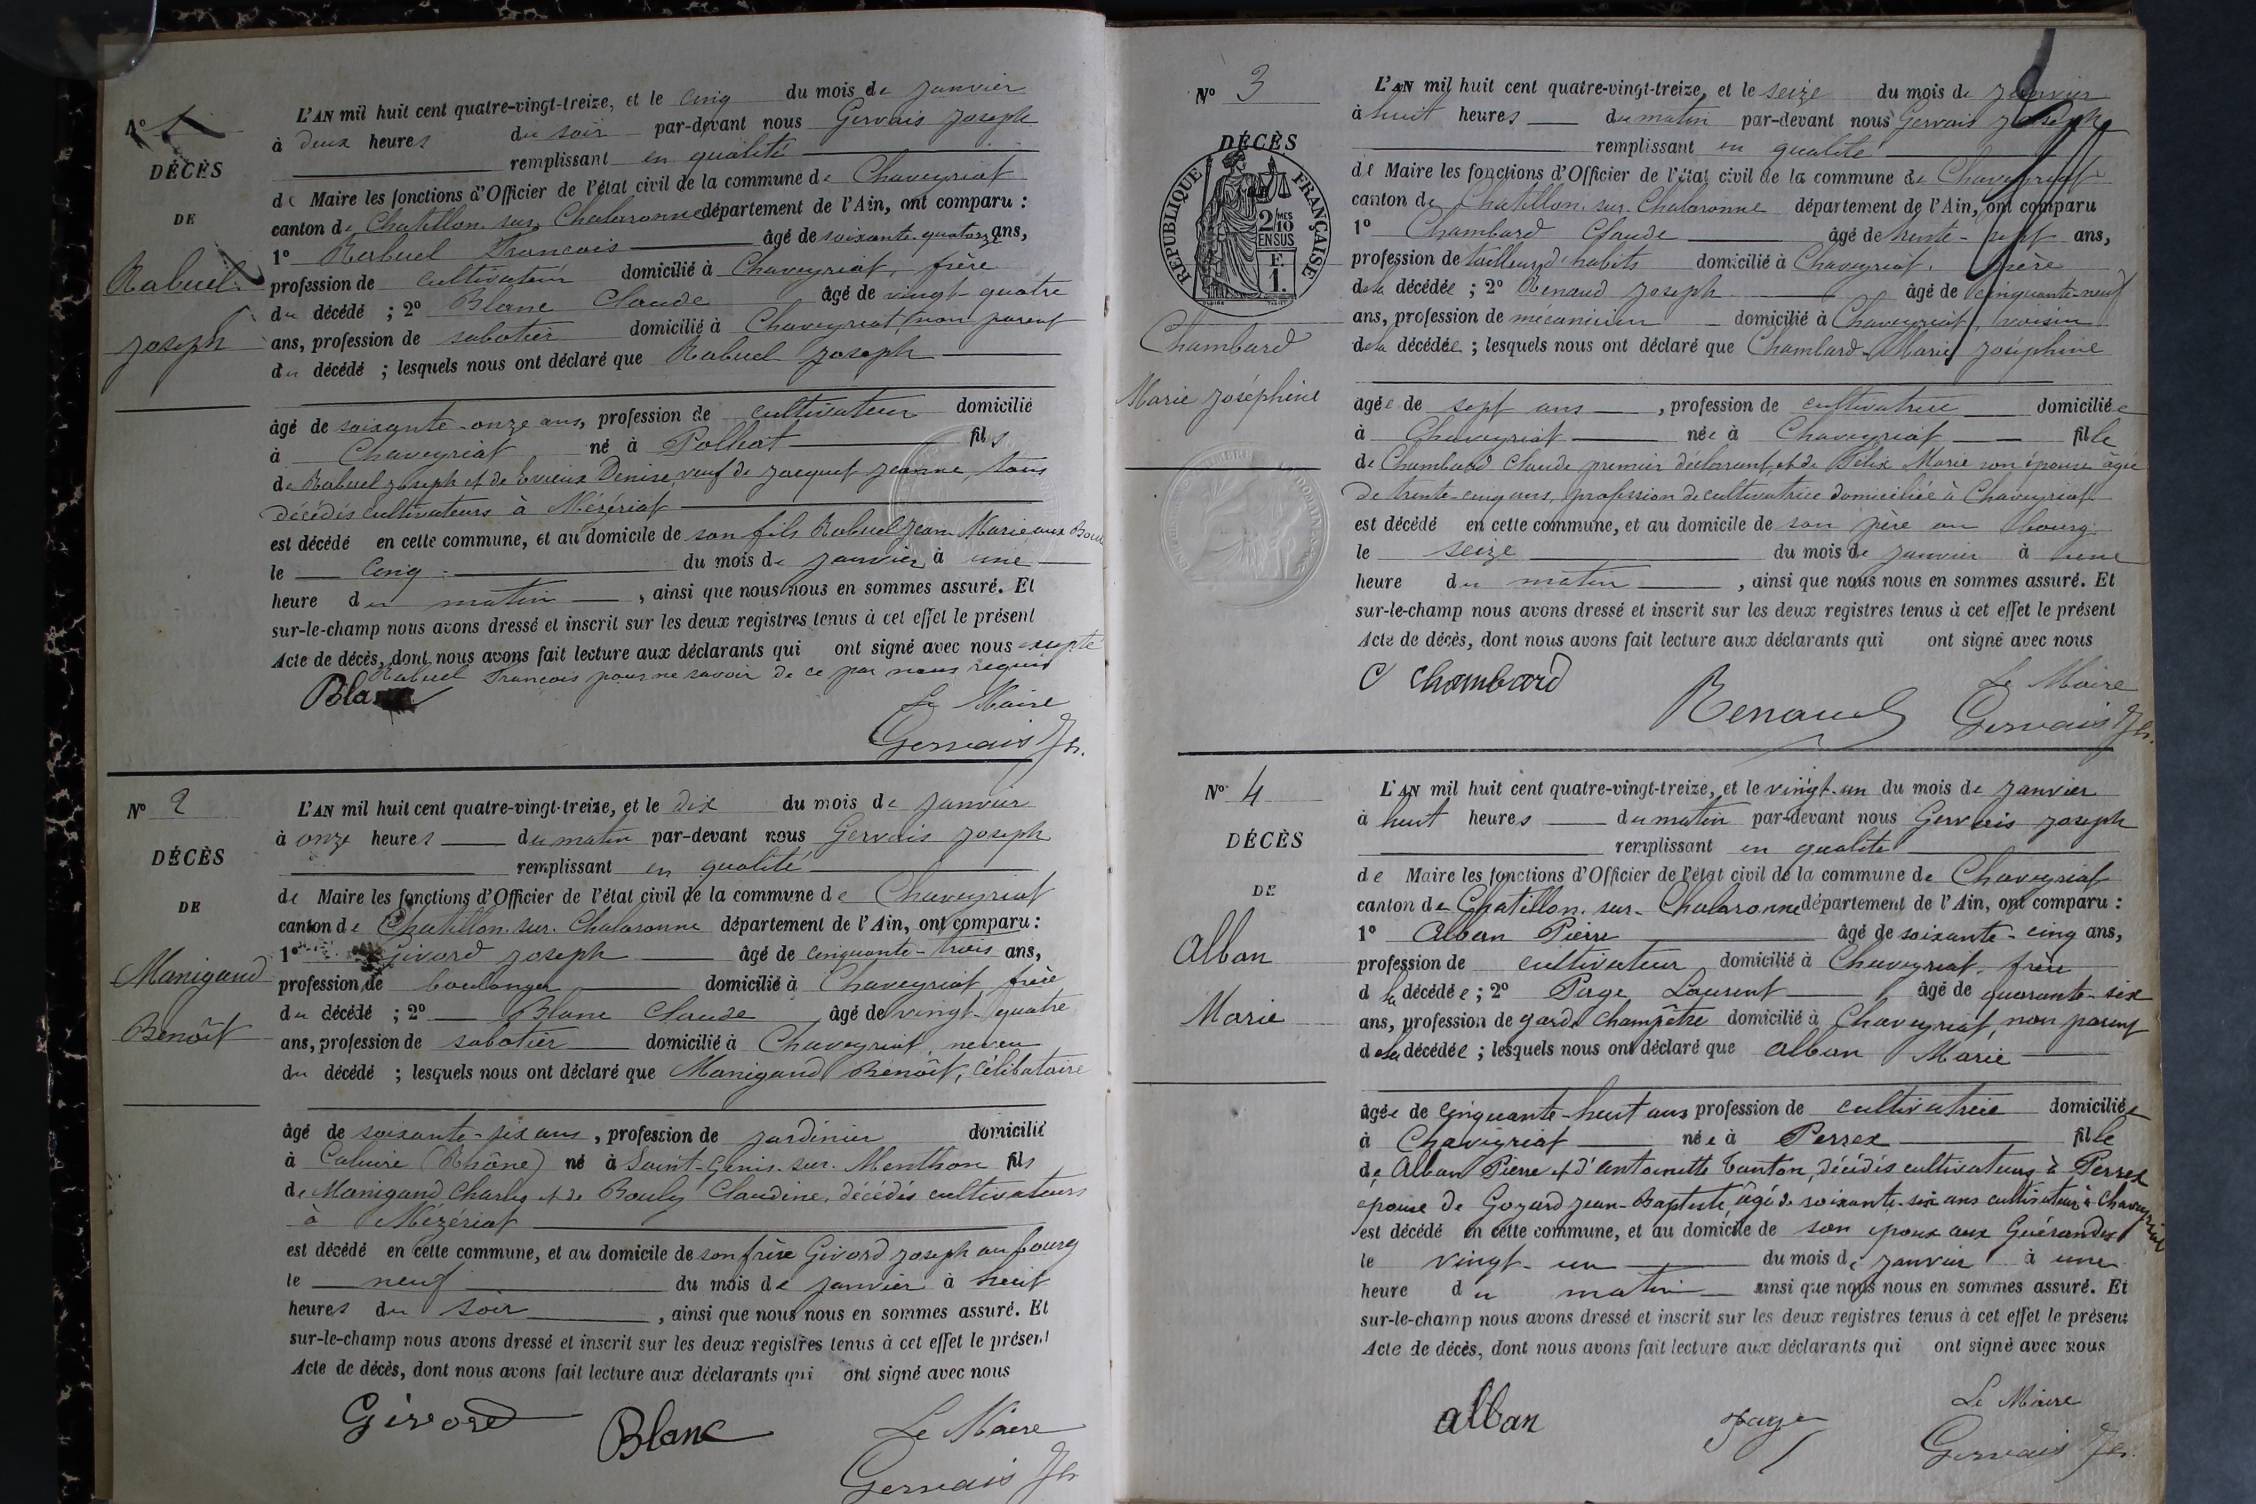 Nº 1
DÉCÈS
DE
Rabuel
Joseph
L'AN mil huit cent quatre-vingt-treize, et le cinq du mois de Janvier
à deux heures du soir par-devant nous Gervais Joseph
remplissant en qualité
de Maire les fonctions d'Officier de l'état civil de la commune de Chaveyriat
canton de Chatillon sur Chalaronne département de l'Ain, ont comparu :
1º Rabuel Francois âgé de soixante-quatorze ans,
profession de cultivateur domicilié à Chaveyriat, frère
du décédé ; 2º Blanc Claude âgé de vingt-quatre
ans, profession de sabotier domicilié à Chaveyriat, non parent
du décédé ; lesquels nous ont déclaré que Rabuel Joseph
âgé de soixante-onze ans, profession de cultivateur domicilié
à Chaveyriat né à Polliat fils
de Rabuel Joseph et de Evieux Denise, veuf de Jacquet Jeanne, tous
décédés cultivateurs à Mézériat
est décédé en cette commune, et au domicile de son fils Rabuel Jean Marie aux
le cinq du mois de Janvier à une
heure du matin, ainsi que nous nous en sommes assuré. Et
sur-le-champ nous avons dressé et inscrit sur les deux registres tenus à cet effet le présent
Acte de décès, dont nous avons fait lecture aux déclarants qui ont signé avec nous excepté
Rabuel Francois pour ne savoir de ce par nous requis
Blanc
Le Maire
Gervais Jh.
Nº 2
DÉCÈS
DE
Manigand
Benoît
L'AN mil huit cent quatre-vingt-treize, et le dix du mois de Janvier
à onze heures du matin par-devant nous Gervais Joseph
remplissant en qualité
de Maire les fonctions d'Officier de l'état civil de la commune de Chaveyriat
canton de Chatillon. sur. Chalaronne département de l'Ain, ont comparu :
1º Givord Joseph âgé de cinquante-trois ans,
profession de boulanger domicilié à Chaveyriat, frère
du décédé ; 2º Blanc Claude âgé de vingt-quatre
ans, profession de sabotier domicilié à Chaveyriat, neveu
du décédé ; lesquels nous ont déclaré que Manigand Benoît, célibataire
âgé de soixante-six ans, profession de jardinier domicilié
à Caluire (Rhône) né à Saint-Genis. sur. Menthon fils
de Manigand Charles et de Bouly Claudine, décédés cultivateurs
à Mézériat
est décédé en cette commune, et au domicile de son frère Givord Joseph au bourg
le neuf du mois de Janvier à huit
heures du soir, ainsi que nous nous en sommes assuré. Et
sur-le-champ nous avons dressé et inscrit sur les deux registres tenus à cet effet le présent
Acte de décès, dont nous avons fait lecture aux déclarants qui ont signé avec nous
Givord
Blanc
Le Maire
Gervais Jh
Nº 3
DÉCÈS
RÉPUBLIQUE FRANÇAISE
2/10 MES
EN SUS
F.
1.
Chambard
Marie Joséphine
L'AN mil huit cent quatre-vingt-treize, et le seize du mois de Janvier
à huit heures du matin par-devant nous Gervais Joseph
remplissant en qualité
de Maire les fonctions d'Officier de l'état civil de la commune de Chaveyriat
canton de Chatillon. sur. Chalaronne département de l'Ain, ont comparu
1º Chambard Claude âgé de trente-sept ans,
profession de tailleur d'habits domicilié à Chaveyriat. père
de la décédée ; 2º Renaud Joseph âgé de cinquante-neuf
ans, profession de mécanicien domicilié à Chaveyriat, voisin
de la décédée ; lesquels nous ont déclaré que Chambard Marie Joséphine
âgée de sept ans, profession de cultivatrice domiciliée
à Chaveyriat née à Chaveyriat fille
de Chambard Claude premier déclarant, et de Félix Marie son épouse âgée
de trente-cinq ans, profession de cultivatrice domiciliée à Chaveyriat
est décédé en cette commune, et au domicile de son père au bourg
le seize du mois de Janvier à une
heure du matin, ainsi que nous nous en sommes assuré. Et
sur-le-champ nous avons dressé et inscrit sur les deux registres tenus à cet effet le présent
Acte de décès, dont nous avons fait lecture aux déclarants qui ont signé avec nous
C Chambard
Renaud
Le Maire
Gervais Jh.
Nº 4
DÉCÈS
DE
Alban
Marie
L'AN mil huit cent quatre-vingt-treize, et le vingt-un du mois de Janvier
à huit heures du matin par-devant nous Gervais Joseph
remplissant en qualité
de Maire les fonctions d'Officier de l'état civil de la commune de Chaveyriat
canton de Chatillon. sur. Chalaronne département de l'Ain, ont comparu :
1º Alban Pierre âgé de soixante-cinq ans,
profession de cultivateur domicilié à Chaveyriat. frère
de la décédée ; 2º Page Laurent âgé de quarante-six
ans, profession de garde champêtre domicilié à Chaveyriat, non parent
de la décédée ; lesquels nous ont déclaré que Alban Marie
âgée de cinquante-huit ans profession de cultivatrice domiciliée
à Chaveyriat née à Perrex fille
de Alban Pierre et d'Antoinette Tanton, décédés cultivateurs à Perrex
épouse de Goyard Jean-Baptiste, âgé de soixante-six ans cultivateur à Chaveyriat
est décédé en cette commune, et au domicile de son époux aux Guérandes
le vingt-un du mois de Janvier à une
heure du matin ainsi que nous nous en sommes assuré. Et
sur-le-champ nous avons dressé et inscrit sur les deux registres tenus à cet effet le présent
Acte de décès, dont nous avons fait lecture aux déclarants qui ont signé avec nous
alban
Page
Le Maire
Gervais Jh.